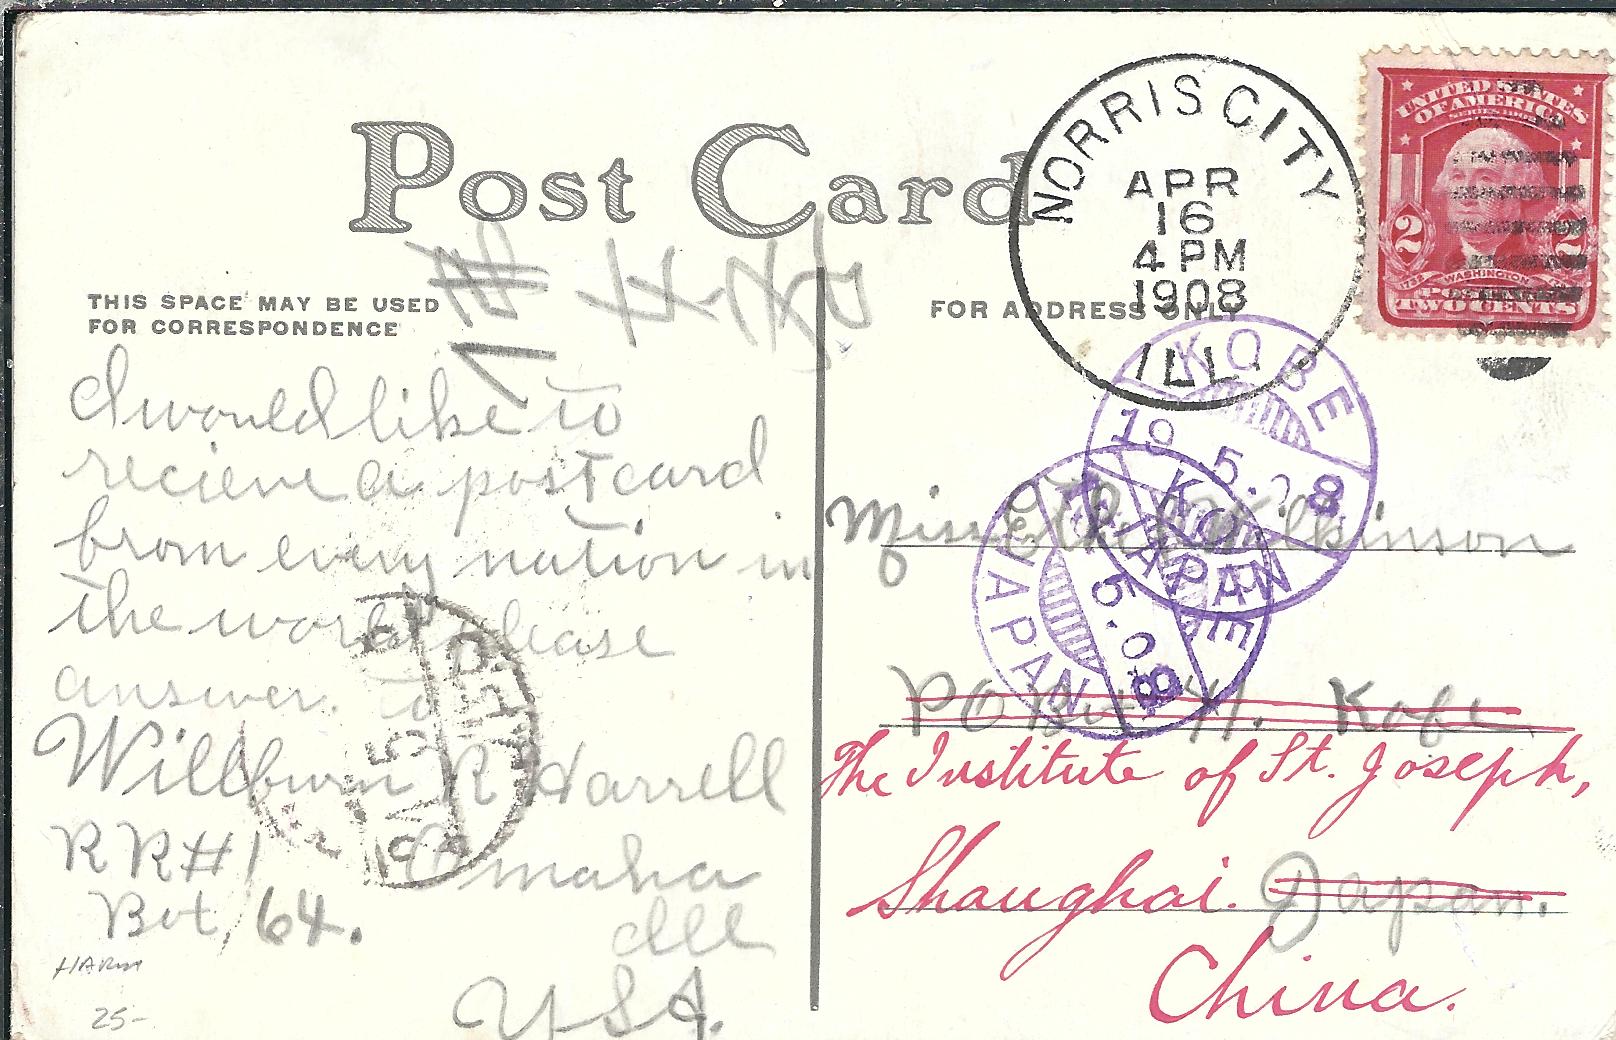 Post Card
THIS SPACE MAY BE USED
FOR CORRESPONDENCE
FOR ADDRESS ONLY
NORRIS CITY
APR
16
4 PM
1908
ILL.
UNITED STATES
OF AMERICA
2 2
WASHINGTON
POSTAGE
TWO CENTS
KOBE
19.5.08
JAPAN
KOBE
5.08
JAPAN
I would like to
recieve a postcard
from every nation in
the world please
answer. to
Willburn R Harrell
RR#1 Omaha
Box 64. Ill
U.S.A.
Miss Wilkinson
PO Box 41. Kobe
The Institute of St. Joseph,
Shanghai. Japan.
China.
25-